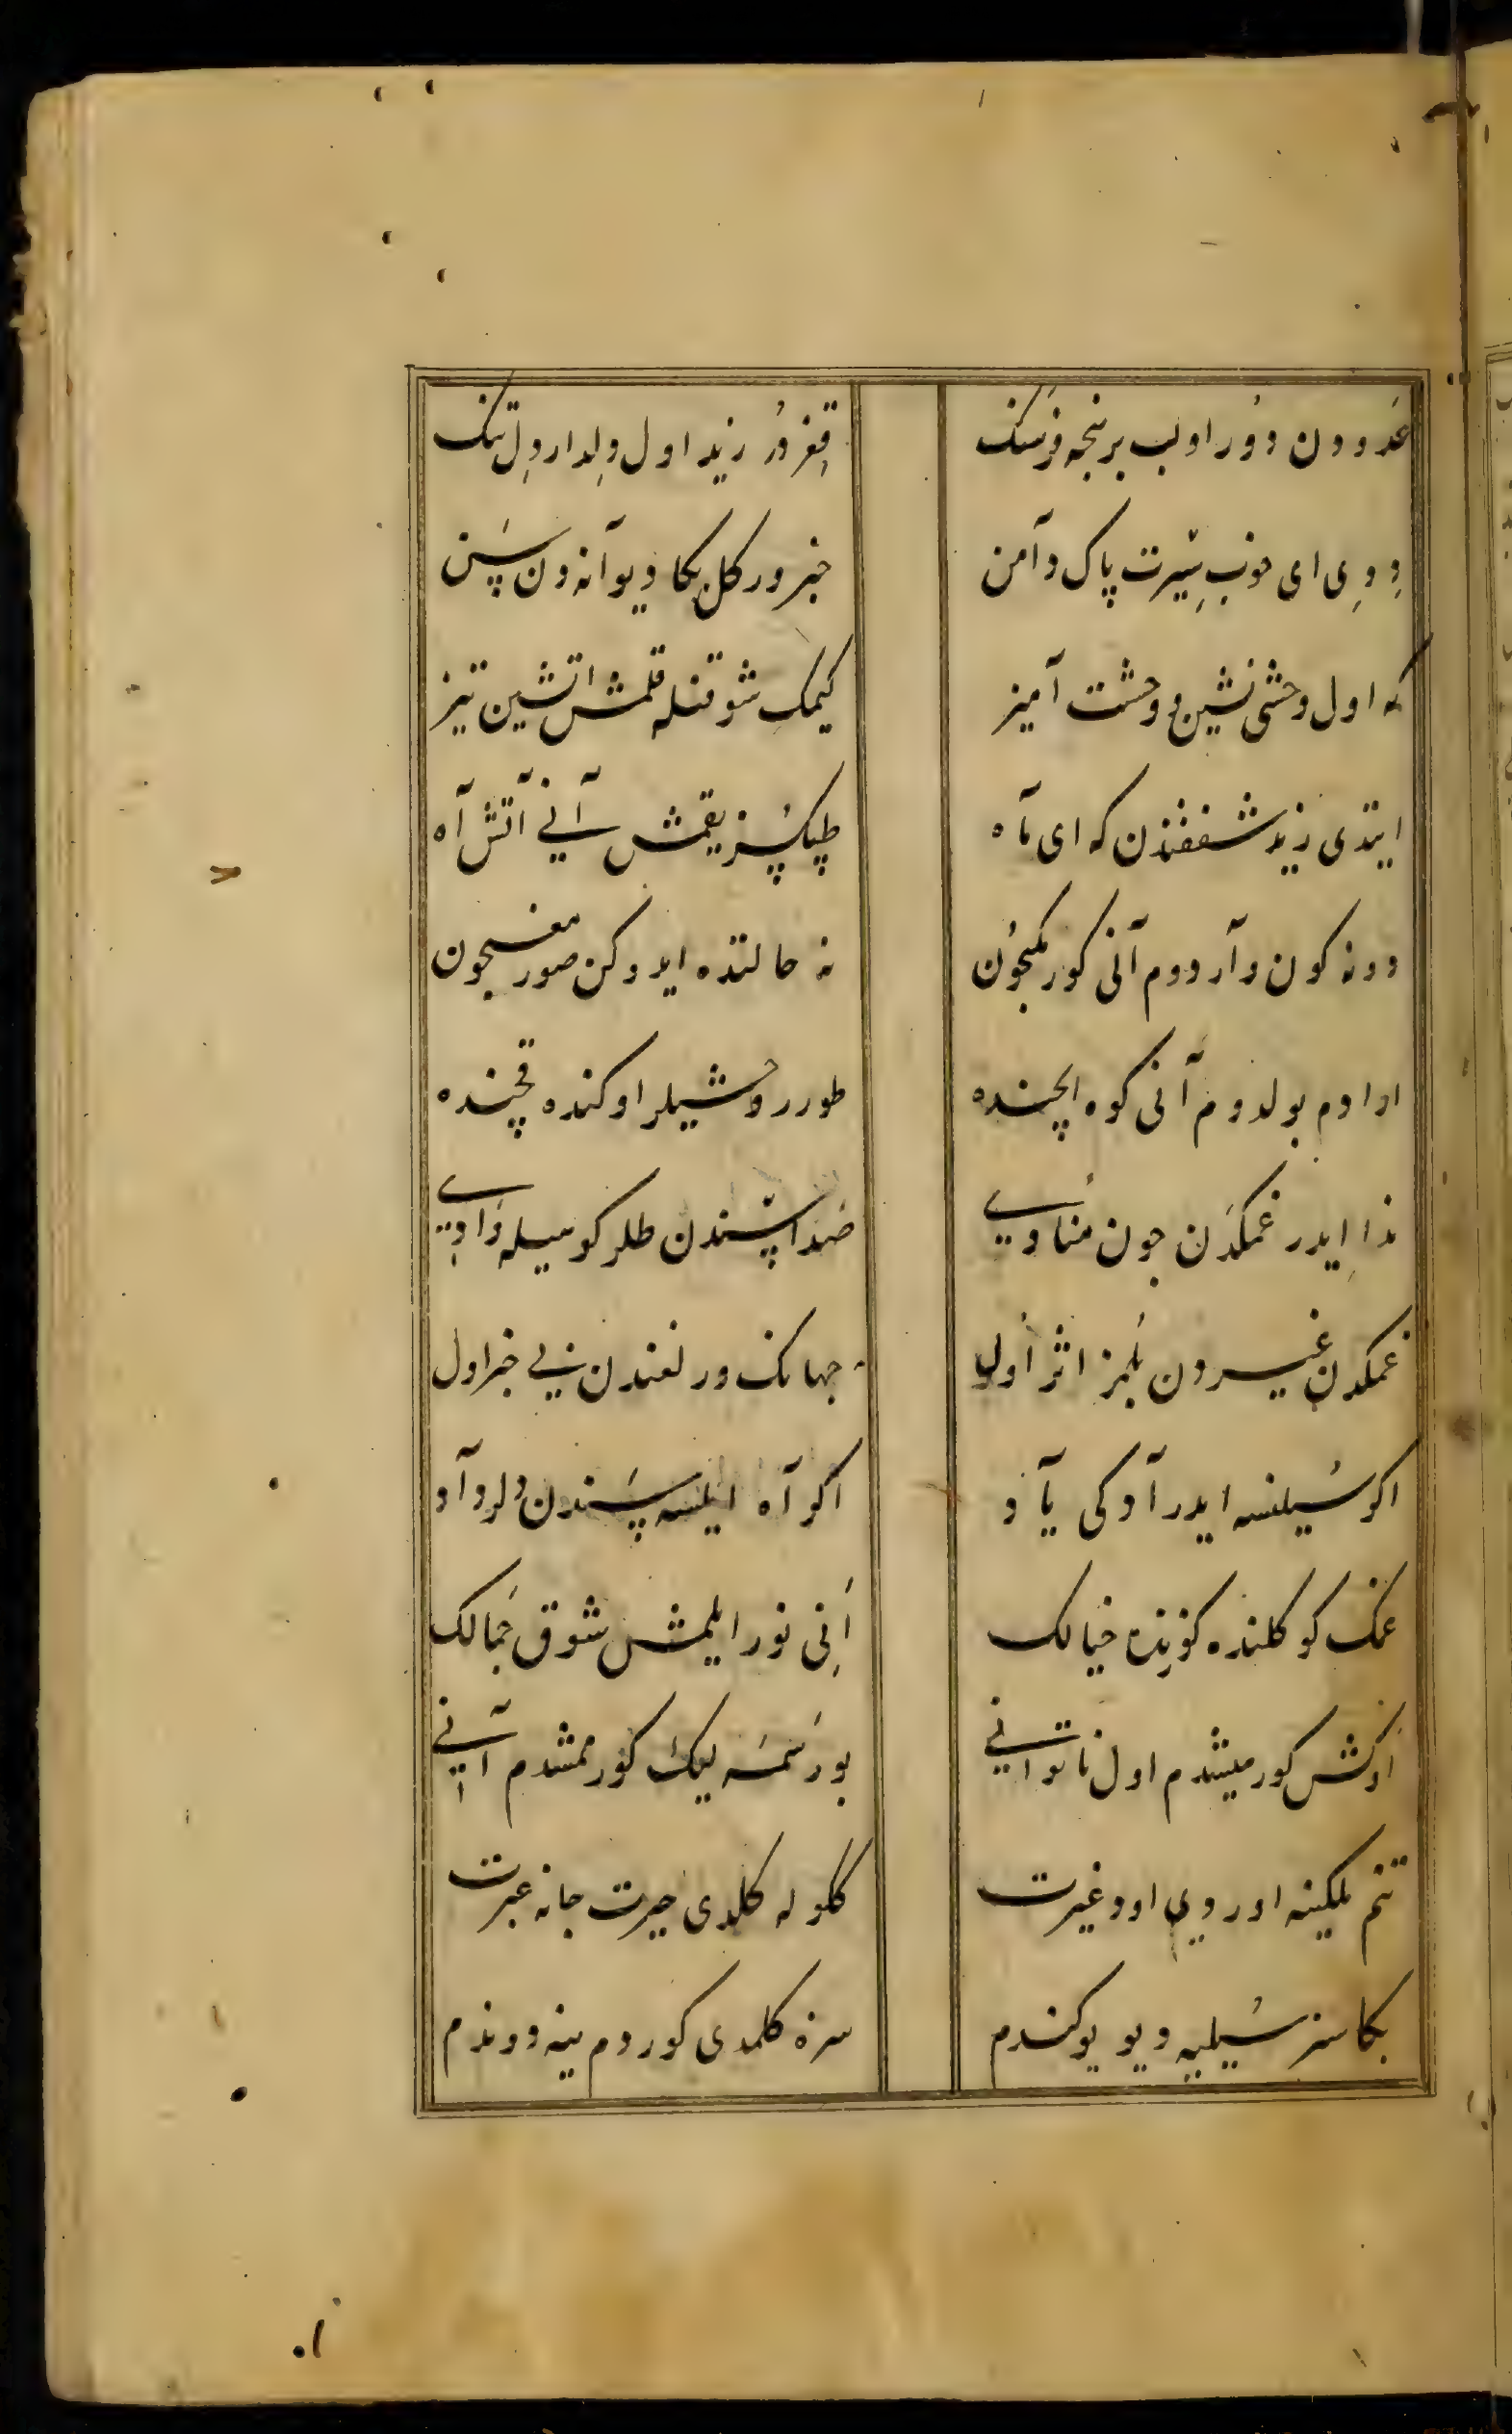 عدودن دور اولب برنجه فرسنک
قغردر زید اول دلدار دل تنک
ددی ای خوب سیرت پاک دامن
خبر ور کل بکا دیوانه دن سن
که اول وحشی نشین و وحشت آمیز
کیمک شوقنله قلمش اتشین تیز
ایتدی زید شفقندن که ای ماه
یقمش آنی آتش آه
دونه کون واردوم آنی کورمکیچون
نه حالتده ایدوکن صورمغیچون
ارادم بولدوم آنی کوه ایچنده
طورر وحشیلر اوکنده قچنده
ندا ایدر غمکدن چون منادی
صداسندن طلر کوسیله وادی
غمکدن غیردن بلمز اثر اول
جهانک ورلغندن بی خبر اول
اکر سیلسه ایدر آدکی یاد
اکر آه ایلسه سندن دلر داد
غمک کوکلنده کوزنده خیالک
انی نور ایلمش شوق جمالک
اوکش کورمیشدم اول ناتوانی
بو رسمه لیک کورممشدم آنی
تنم یلکینه اوردی اود غیرت
کلو له کلدی حیرت جانه عبرت
بکا سز سیلیه دیو یوکندم
سزه کلمدی کوردم ینه دوندم